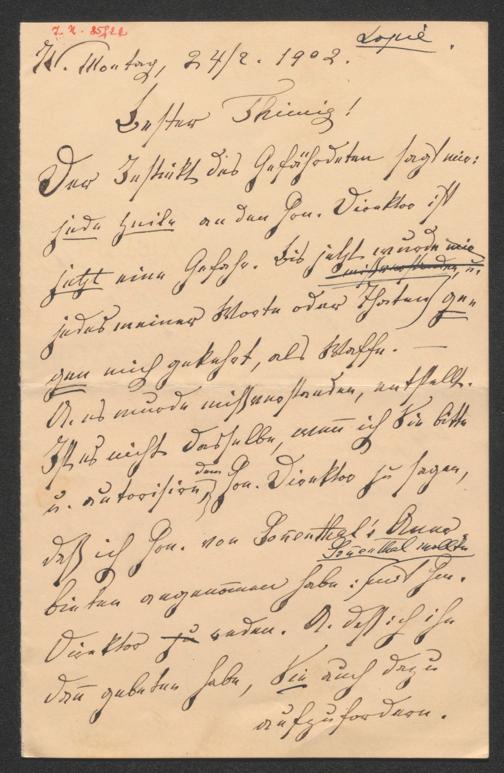 Copie.
W. Montag, 24/2. 1902.
Bester Thimig!
Der Instinkt des Gefährdeten sagt mir:
jede Zeile an den Hrn. Direktor ist
jetzt eine Gefahr. Bis jetzt wurde mir
missverstanden, u.
jedes meiner Worte oder Thaten gegen
gen mich gekehrt, als Waffe. —
U. es wurde mißverstanden, entstellt.
Ist es nicht dasselbe, wenn ich Sie bitte
dem
u. autorisire, Hrn. Direktor zu sagen,
daß ich Hrn. von Sonnenthal's Aner
Sonnenthal wollte
bieten angenommen habe: mit Hrn.
Direktor zu reden. U. daß ich ihn
dann gebeten habe, Sie auch dazu
aufzufordern.